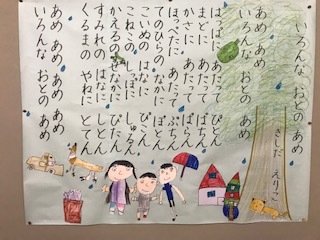 いろんな おとの あめ
きしだ えりこ
あめ あめ あめ あめ
いろんな おとの あめ
はっぱに あたって ぴとん
まどに あたって ぱちん
かさに あたって ぱらん
ほっぺたに あたって ぷちん
てのひらの なかに ぽとん
こいぬの はなに ぴこん
こねこの しっぽに しゅるん
かえるの せなかに ぴたん
すみれの はなに しとん
くるまの やねに とてん
あめ あめ あめ あめ
いろんな おとの あめ